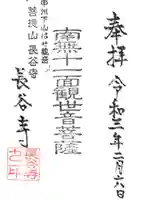 奉拝 令和二年二月六日
南無十一面観世音菩薩
菩提山長谷寺
長谷寺